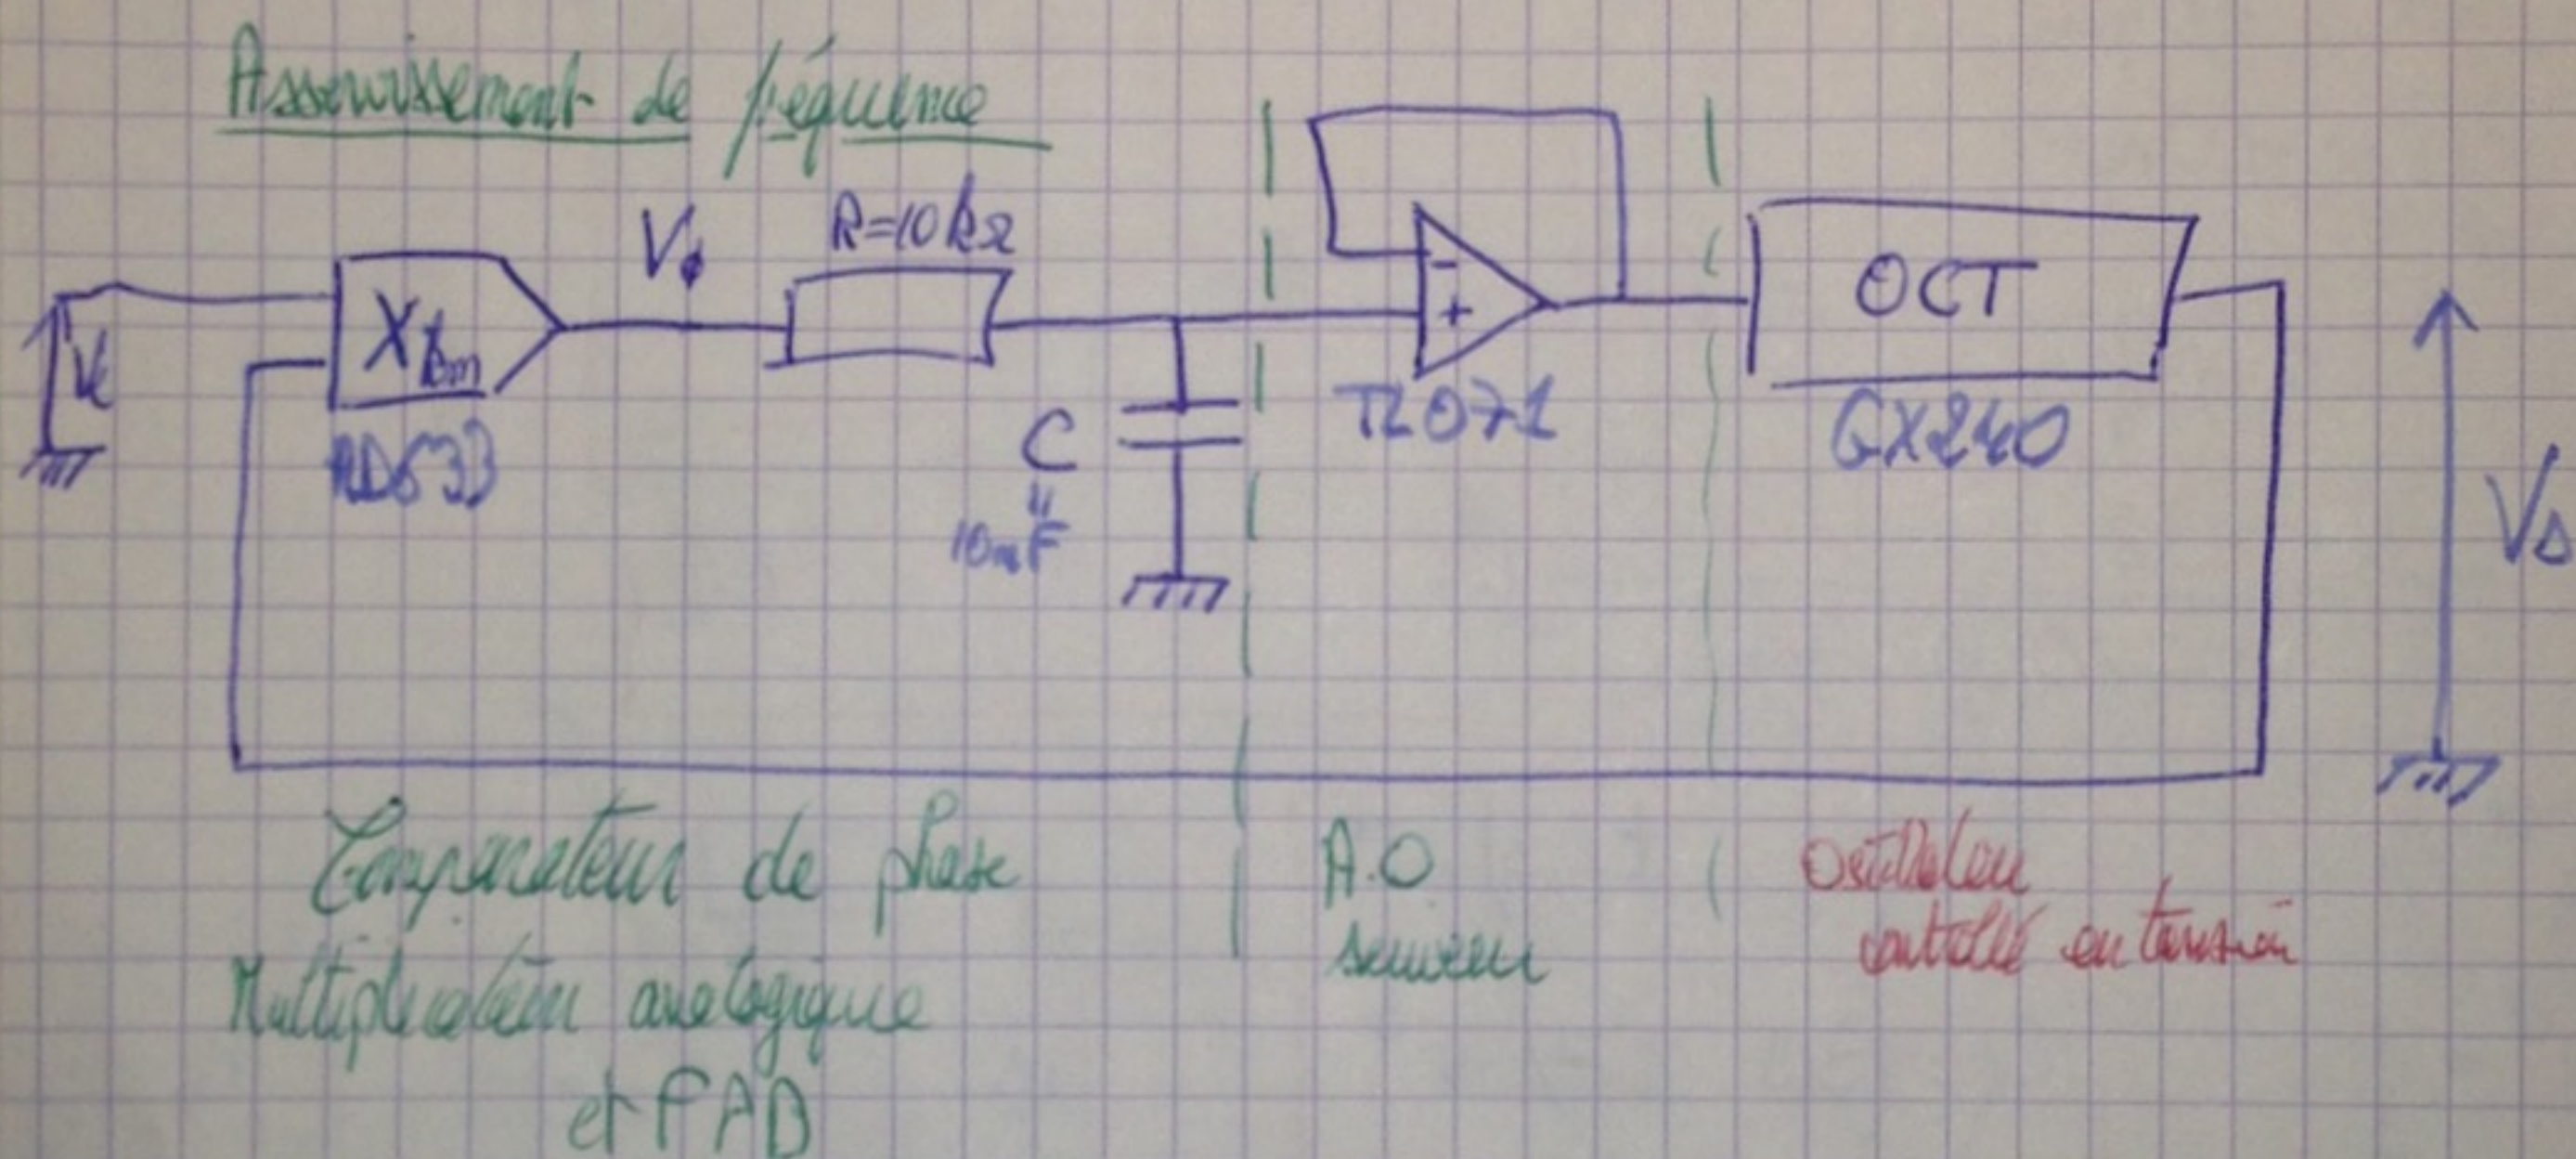 Asservissement de fréquence
Ve
X km
AD633
Vϕ
R=10kΩ
C
=
10nF
-
+
TL071
OCT
GX240
Vs
Comparateur de phase
Multiplication analogique
et PAB
A.O
suiveur
Oscillateur
contrôlé en tension